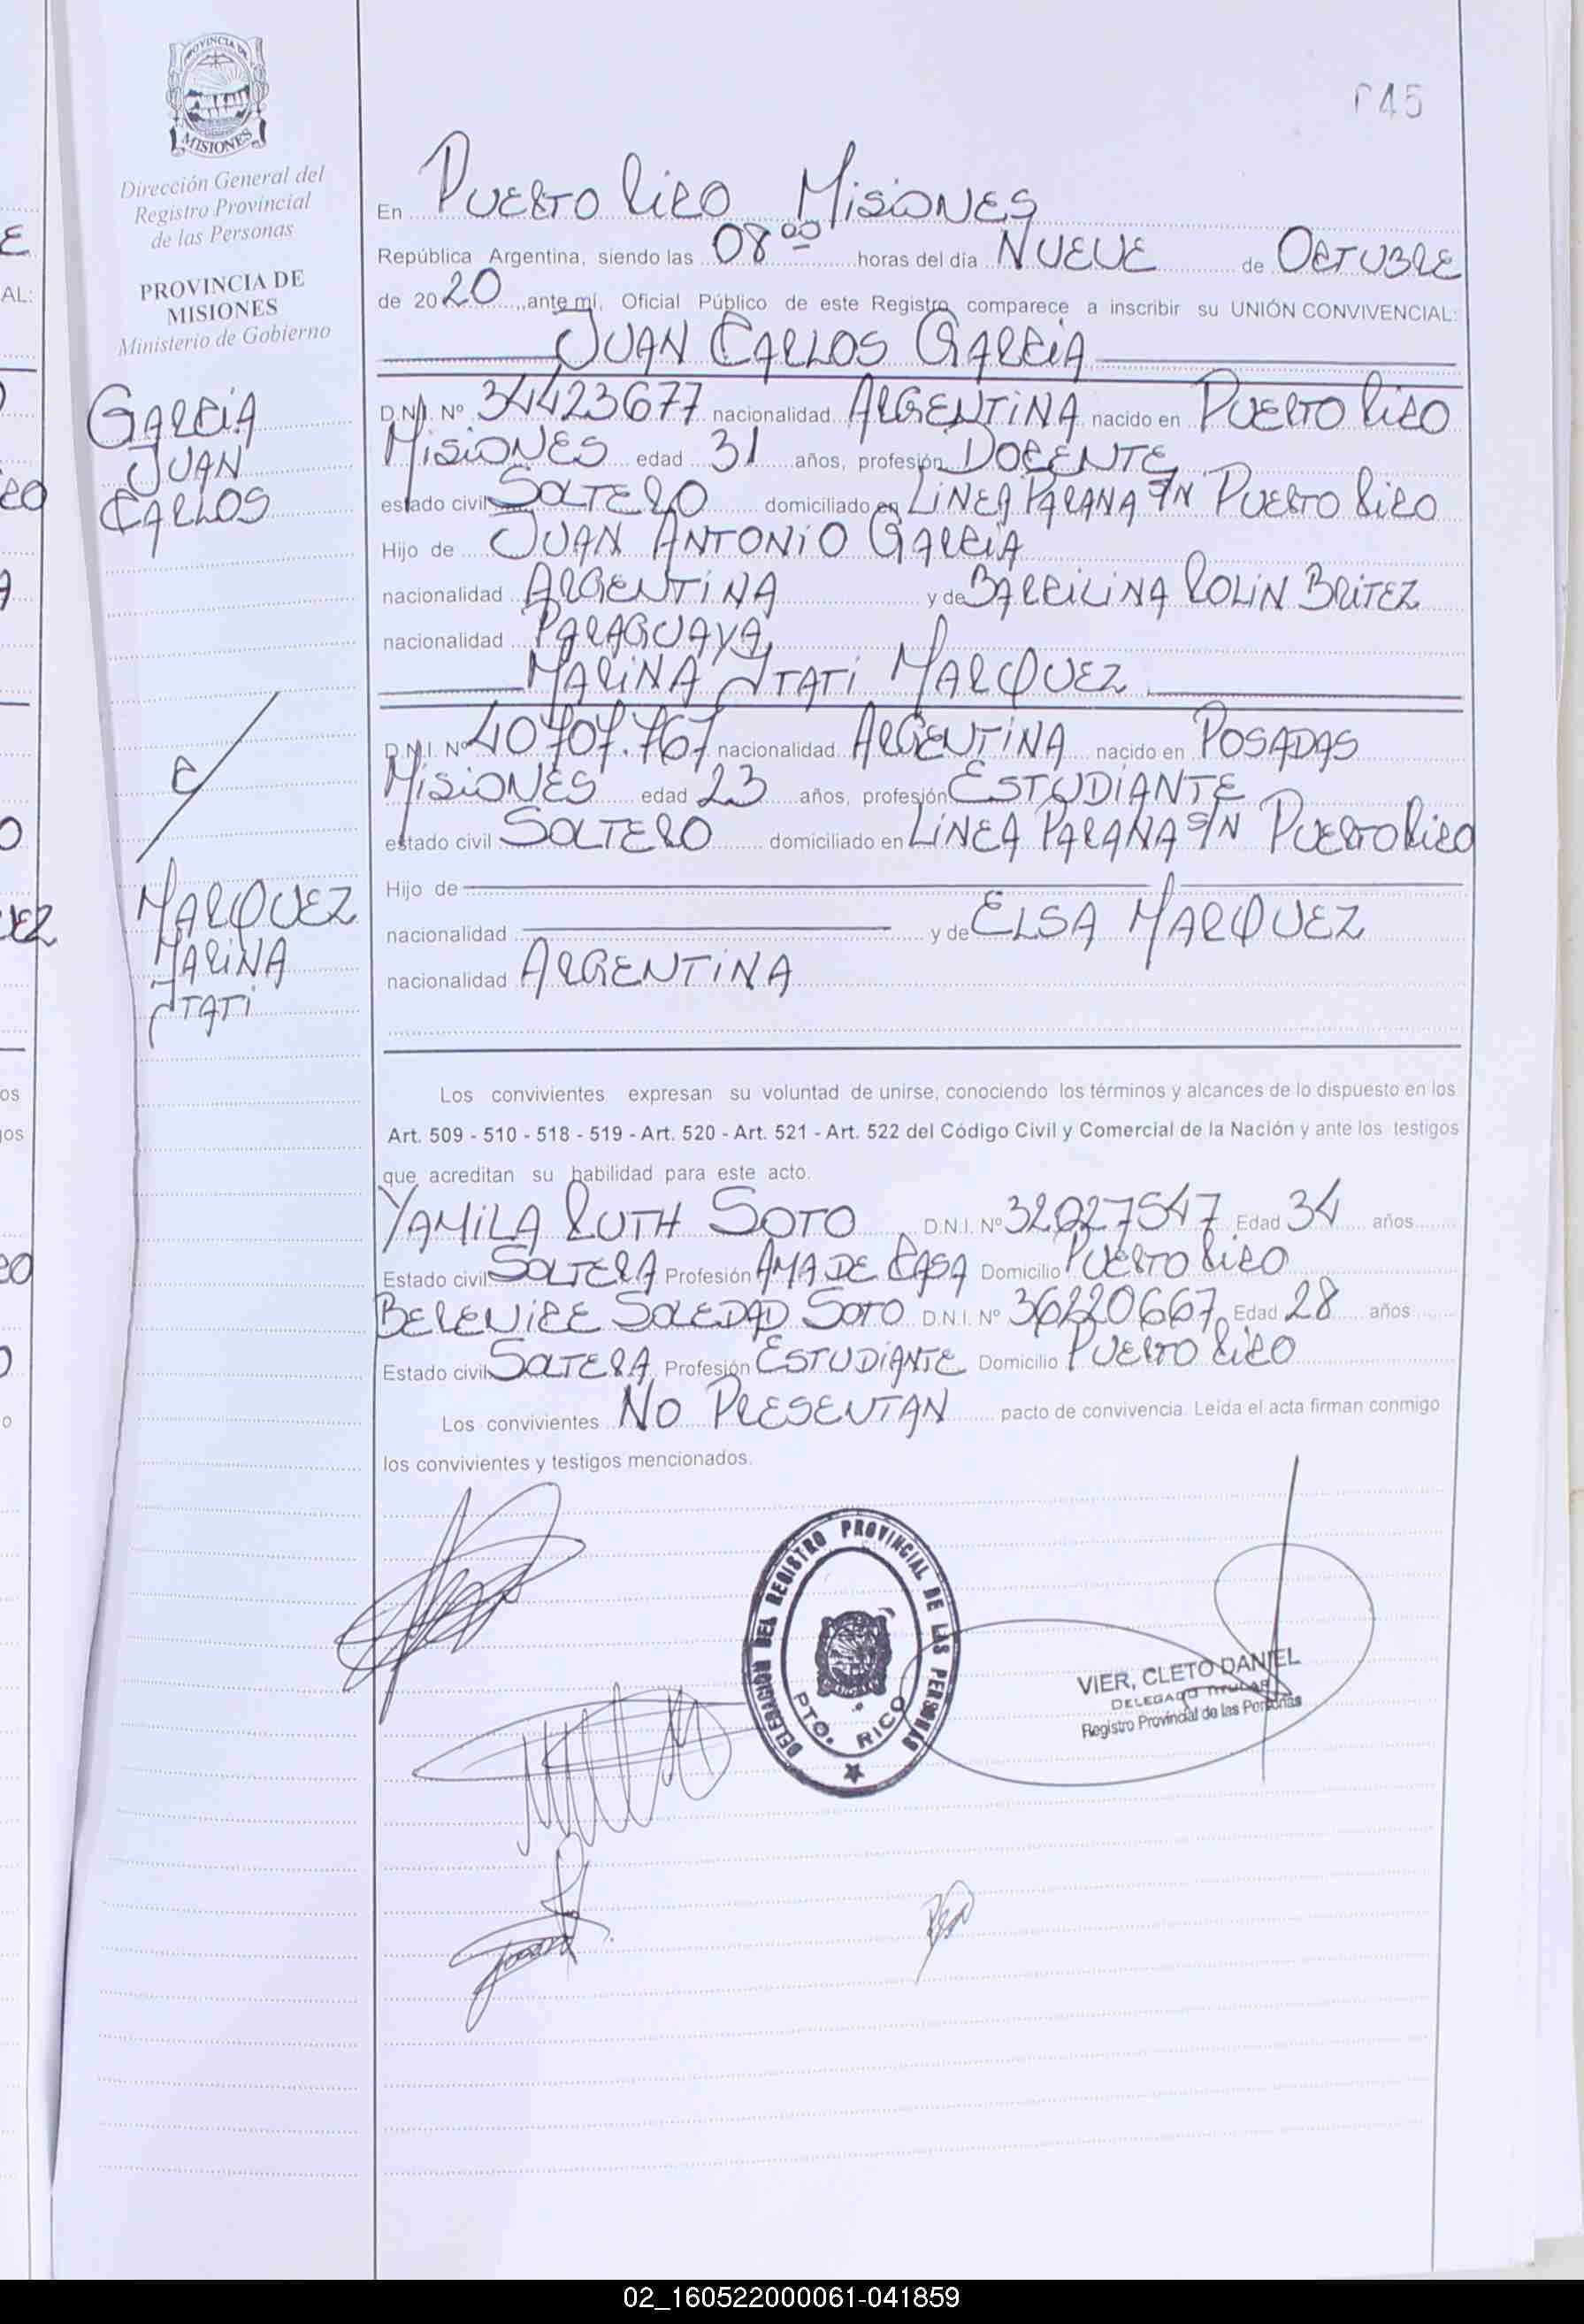 045
PROVINCIA DE
MISIONES
Dirección General del
Registro Provincial
de las Personas
PROVINCIA DE
MISIONES
Ministerio de Gobierno
GARCIA
JUAN
CARLOS
C/
MARQUEZ
MARINA
ITATI
En PUERTO RICO MISIONES
República Argentina, siendo las 08 00 horas del día NUEVE de OCTUBRE
de 2020 ante mí, Oficial Público de este Registro comparece a inscribir su UNIÓN CONVIVENCIAL:
JUAN CARLOS GARCIA
D.N.I. Nº 34423677 nacionalidad ARGENTINA nacido en PUERTO RICO
MISIONES edad 31 años, profesión DOCENTE
estado civil SOLTERO domiciliado en LINEA PARANA S/N PUERTO RICO
Hijo de JUAN ANTONIO GARCIA
nacionalidad ARGENTINA y de BARCILINA ROLIN BRITEZ
nacionalidad PARAGUAYA
MARINA ITATI MARQUEZ
D.N.I. Nº 40707.767 nacionalidad ARGENTINA nacido en POSADAS
MISIONES edad 23 años, profesión ESTUDIANTE
estado civil SOLTERO domiciliado en LINEA PARANA S/N PUERTO RICO
Hijo de
nacionalidad y de ELSA MARQUEZ
nacionalidad ARGENTINA
Los convivientes expresan su voluntad de unirse, conociendo los términos y alcances de lo dispuesto en los
Art. 509 - 510 - 518 - 519 - Art. 520 - Art. 521 - Art. 522 del Código Civil y Comercial de la Nación y ante los testigos
que acreditan su habilidad para este acto.
YAMILA RUTH SOTO D.N.I. Nº 32027547 Edad 34 años
Estado civil SOLTERA Profesión AMA DE CASA Domicilio PUERTO RICO
BERENICE SOLEDAD SOTO D.N.I. Nº 36220667 Edad 28 años
Estado civil SOLTERA Profesión ESTUDIANTE Domicilio PUERTO RICO
Los convivientes NO PRESENTAN pacto de convivencia. Leída el acta firman conmigo
los convivientes y testigos mencionados.
DELEGACION DEL REGISTRO PROVINCIAL DE LAS PERSONAS
PTO. RICO
VIER, CLETO DANIEL
DELEGADO TITULAR
Registro Provincial de las Personas
02_160522000061-041859